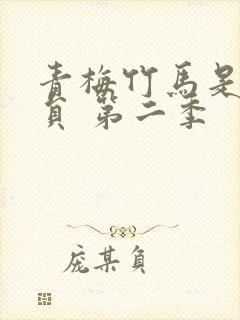 青梅竹馬是
負 第二季
庞某負